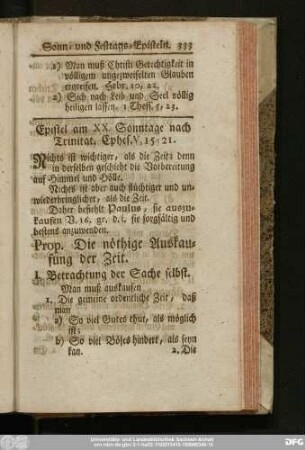 Sonn- und Festtags-Episteln. 333
1) Man muß Christi Gerechtigkeit in
völligem ungezweifelten Glauben
ergreifen. Hebr. 10, 22.
2) Sich nach Leib und Seel völlig
heiligen lassen. 1 Thess. 5, 23.
Epistel am XX. Sonntage nach
Trinitat. Ephes. V, 15-21.
Nichts ist wichtiger, als die Zeit: denn
in derselben geschieht die Vorbereitung
auf Himmel und Hölle.
Nichts ist aber auch flüchtiger und un-
wiederbringlicher, als die Zeit.
Daher befiehlt Paulus, sie auszu-
kaufen V. 16. gr. d. i. sie sorgfältig und
bestens anzuwenden.
Prop. Die nöthige Auskau-
fung der Zeit.
I. Betrachtung der Sache selbst.
Man muß auskaufen
1. Die gemeine ordentliche Zeit, daß
man
a) So viel Gutes thut, als möglich
ist;
b) So viel Böses hindert, als seyn
kan.
2. Die
Universitäts- und Landesbibliothek Sachsen-Anhalt
DFG